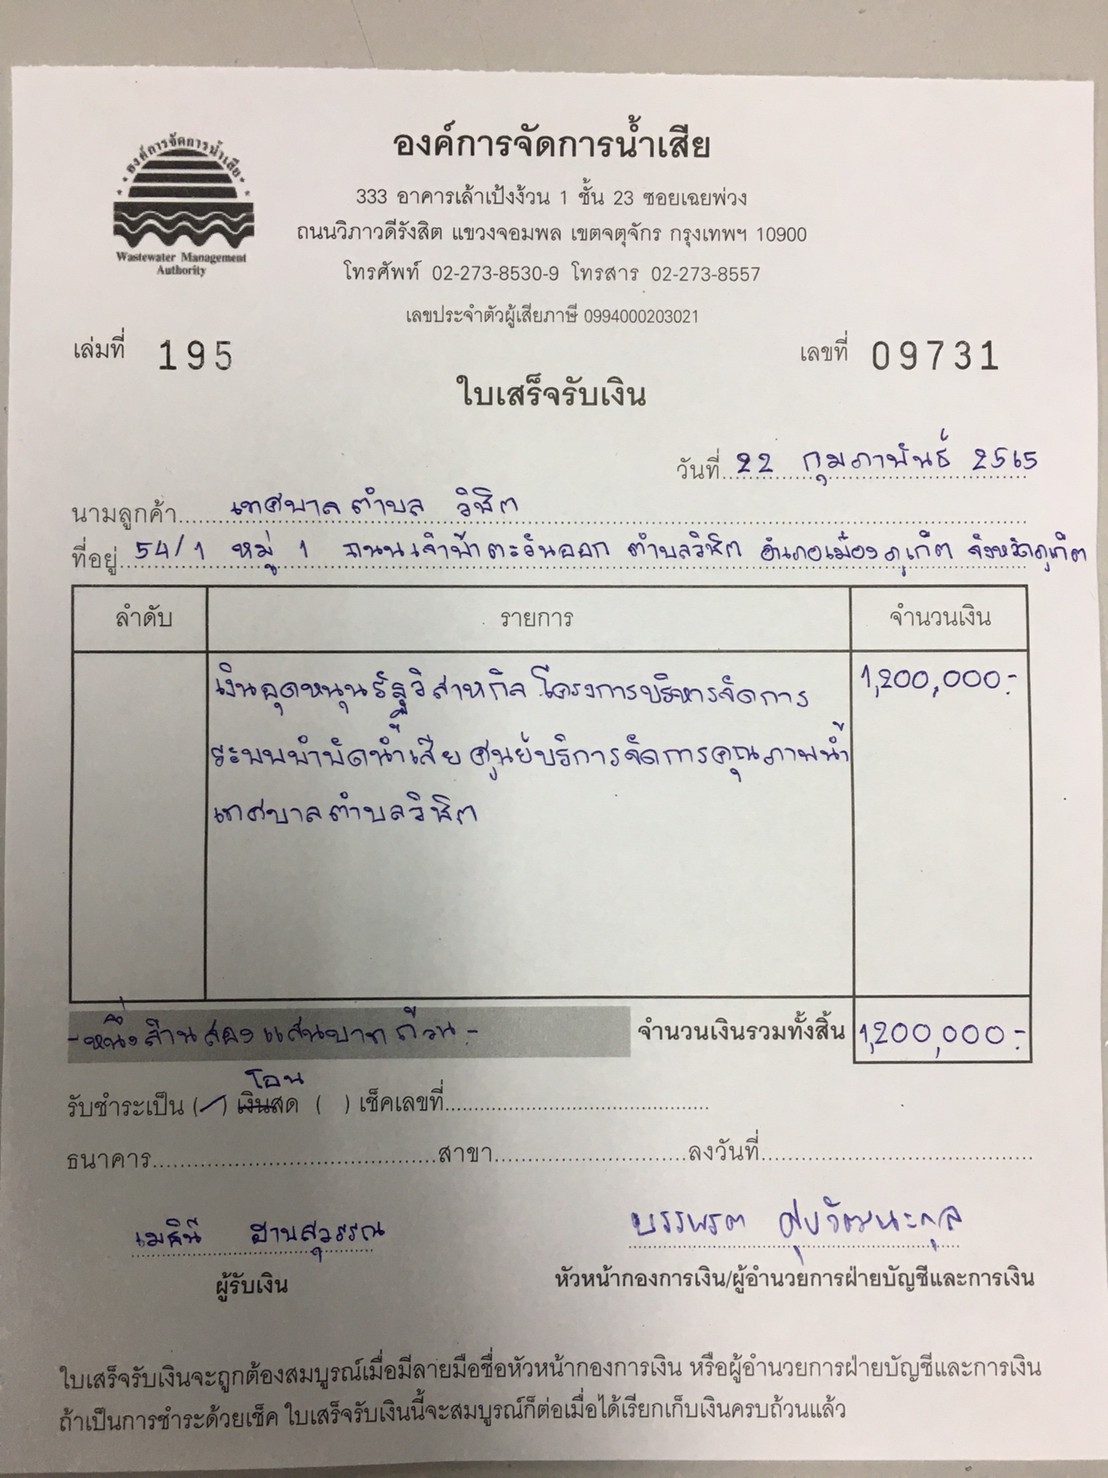 องค์การจัดการน้ำเสีย
Wastewater Management
Authority
องค์การจัดการน้ำเสีย
333 อาคารเล้าเป้งง้วน 1 ชั้น 23 ซอยเฉยพ่วง
ถนนวิภาวดีรังสิต แขวงจอมพล เขตจตุจักร กรุงเทพฯ 10900
โทรศัพท์ 02-273-8530-9 โทรสาร 02-273-8557
เลขประจำตัวผู้เสียภาษี 0994000203021
เล่มที่ 195 เลขที่ 09731
ใบเสร็จรับเงิน
วันที่ 22 กุมภาพันธ์ 2565
นามลูกค้า เทศบาลตำบล วิชิต
ที่อยู่ 54/1 หมู่ 1 ถนนเจ้าฟ้าตะวันออก ตำบลวิชิต อำเภอเมืองภูเก็ต จังหวัดภูเก็ต
ลำดับ รายการ จำนวนเงิน
เงินอุดหนุนรัฐวิสาหกิจ โครงการบริหารจัดการ 1,200,000.-
ระบบบำบัดน้ำเสีย ศูนย์บริการจัดการคุณภาพน้ำ
เทศบาลตำบลวิชิต
-หนึ่งล้านสองแสนบาทถ้วน- จำนวนเงินรวมทั้งสิ้น 1,200,000.-
โอน
รับชำระเป็น (✓) เงินสด ( ) เช็คเลขที่
ธนาคาร สาขา ลงวันที่
เมธินี ฮานสุวรรณ บรรพรต ศุขวัฒนะกุล
ผู้รับเงิน หัวหน้ากองการเงิน/ผู้อำนวยการฝ่ายบัญชีและการเงิน
ใบเสร็จรับเงินจะถูกต้องสมบูรณ์เมื่อมีลายมือชื่อหัวหน้ากองการเงิน หรือผู้อำนวยการฝ่ายบัญชีและการเงิน
ถ้าเป็นการชำระด้วยเช็ค ใบเสร็จรับเงินนี้จะสมบูรณ์ก็ต่อเมื่อได้เรียกเก็บเงินครบถ้วนแล้ว